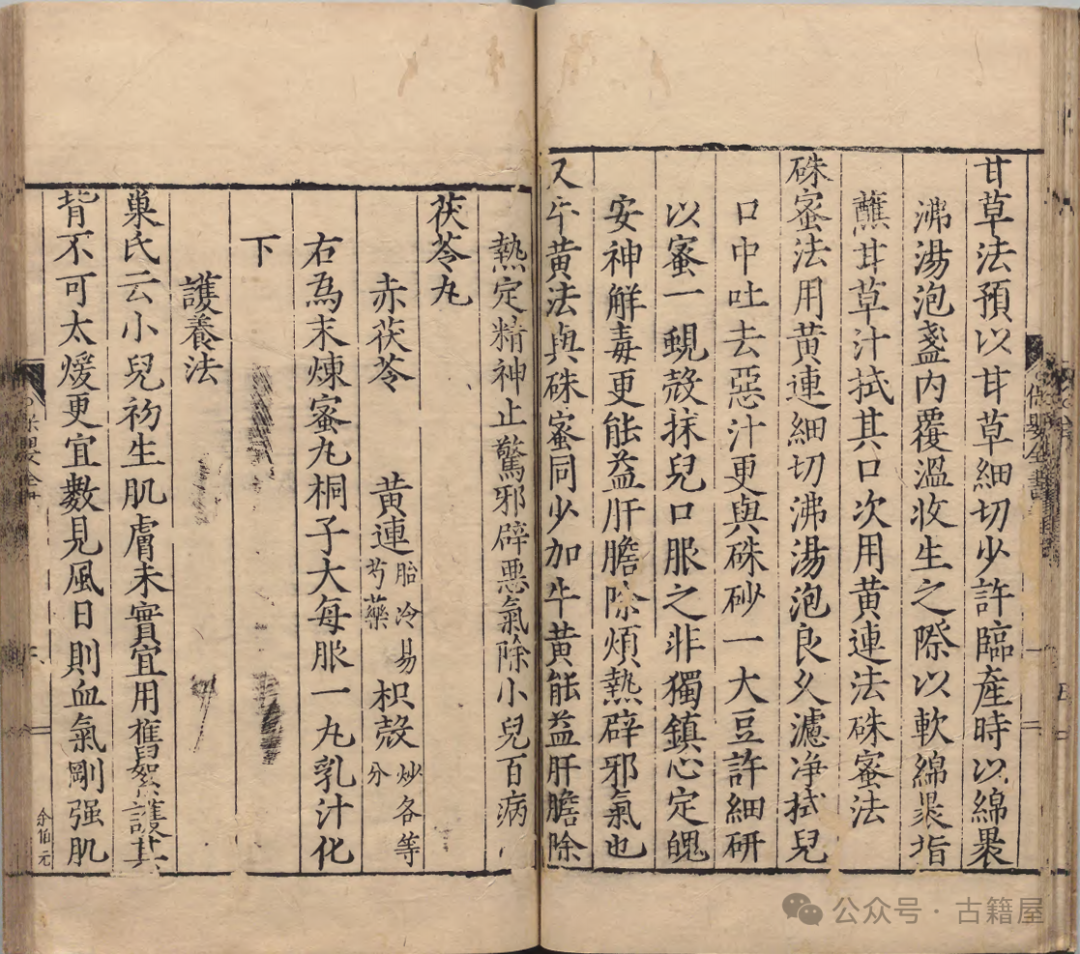 甘草法預以甘草細切少許臨產時以綿裹
沸湯泡盞内覆溫收生之際以軟綿裹指
蘸甘草汁拭其口次用黃連法硃蜜法
硃蜜法用黃連細切沸湯泡良久濾净拭兒
口中吐去惡汁更與硃砂一大豆許細研
以蜜一蜆殻抹兒口服之非獨鎮心定魄
安神解毒更能益肝膽除煩熱辟邪氣也
又牛黃法與硃蜜同少加牛黃能益肝膽除
熱定精神止驚邪辟惡氣除小兒百病
茯苓丸
赤茯苓 黃連胎冷易芍藥 枳殻炒各等分
右為末煉蜜丸桐子大每服一丸乳汁化
下
護養法
巢氏云小兒初生肌膚未實宜用舊絮護其
背不可太煖更宜數見風日則血氣剛强肌
保嬰全書
余伯元
公众号·古籍屋